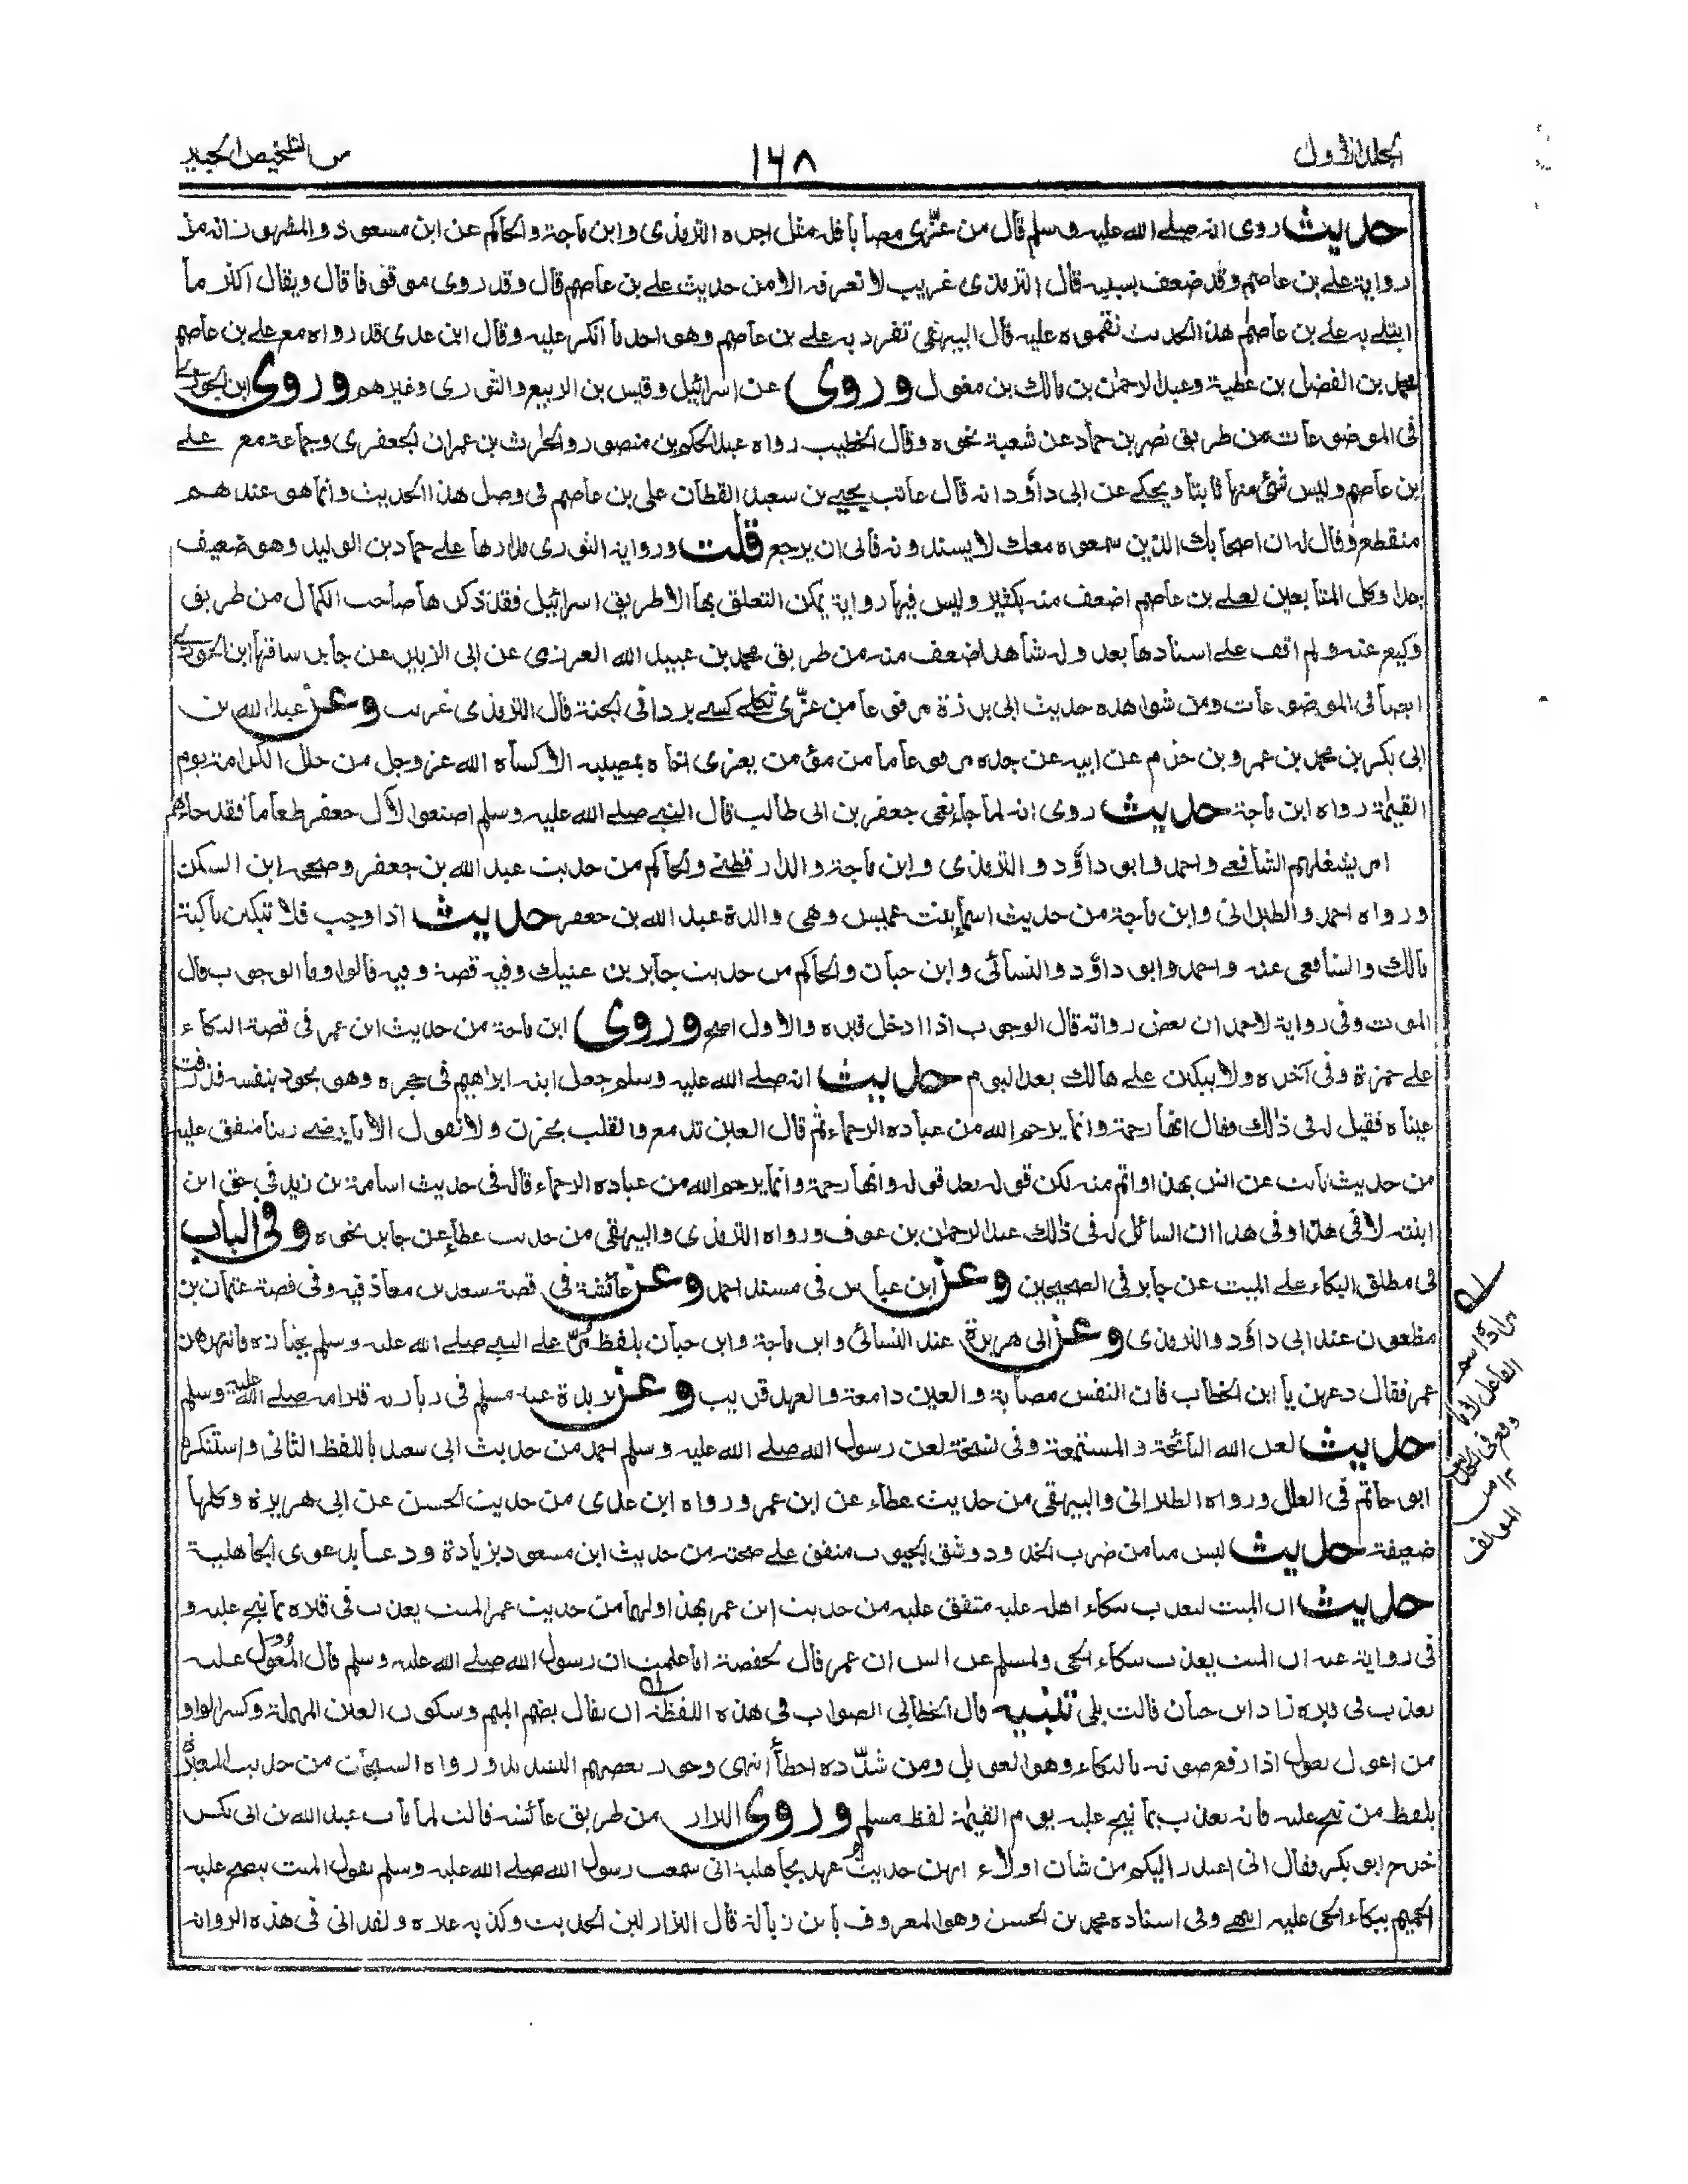 الجلد الاول
١٦٨
من التلخيص الحبير
حديث روى انه صلے الله عليه وسلم قال من عزّى مصابا فله مثل اجره الترمذى وابن ماجة والحاكم عن ابن مسعود والمشهور انه من
رواية علے بن عاصم وقد ضعف بسببه قال الترمذى غريب لا نعرفه الا من حديث علے بن عاصم قال وقد روى موقوفا قال ويقال اكثر ما
ابتلے به علے بن عاصم هذا الحديث نقموه عليه قال البيهقى تفرد به علے بن عاصم وهو احد ما انكر عليه وقال ابن عدى قد رواه مع علے بن عاصم
محمد بن الفضل بن عطية وعبد الرحمٰن بن مالك بن مغول وروى عن اسرائيل وقيس بن الربيع والثورى وغيرهم وروى ابن الجوزے
فى الموضوعات من طريق نصر بن حماد عن شعبة نحوه وقال الخطيب رواه عبد الحكم بن منصور والحارث بن عمران الجعفرى وجماعة مع علے
ابن عاصم وليس شئ منها ثابتا ويحكے عن ابى داؤد انه قال عاتب يحيے بن سعيد القطان على بن عاصم فى وصل هذا الحديث وانما هو عندهم
منقطع وقال له ان اصحابك الذين سمعوه معك لا يسندونه فابى ان يرجع قلت ورواية الثورى مدارها علے حماد بن الوليد وهو ضعيف
جدا وكل المتابعين لعلے بن عاصم اضعف منه بكثير وليس فيها رواية يمكن التعلق بها الا طريق اسرائيل فقد ذكرها صاحب الكمال من طريق
وكيع عنه ولم اقف علے اسنادها بعد وله شاهد اضعف منه من طريق محمد بن عبيد الله العرزمى عن ابى الزبير عن جابر ساقها ابن الجوزے
ايضا فى الموضوعات ومن شواهده حديث ابى برزة مرفوعا من عزّى ثكلے كسے بردا فى الجنة قال الترمذى غريب وعن عبد الله بن
ابى بكر بن محمد بن عمرو بن حزم عن ابيه عن جده مرفوعا ما من مؤمن يعزى اخاه بمصيبه الا كساه الله عز وجل من حلل الكرامة يوم
القيمة رواه ابن ماجة حديث روى انه لما جاء نعى جعفر بن ابى طالب قال النبے صلے الله عليه وسلم اصنعوا لآل جعفر طعاما فقد جاءهم
امر يشغلهم الشافعے واحمد وابو داؤد والترمذى وابن ماجة والدارقطنے والحاكم من حديث عبد الله بن جعفر وصححه ابن السكن
ورواه احمد والطبرانى وابن ماجة من حديث اسماء بنت عميس وهى والدة عبد الله بن جعفر حديث اذا وجب فلا تبكين باكية
مالك والشافعى عنه واحمد وابو داؤد والنسائى وابن حبان والحاكم من حديث جابر بن عتيك وفيه قصة وفيه قالوا وما الوجوب قال
الموت وفى رواية لاحمد ان بعض رواته قال الوجوب اذا ادخل قبره والاول اصح وروى ابن ماجة من حديث ابن عمر فى قصة البكاء
علے حمزة وفى آخره ولا يبكين علے هالك بعد اليوم حديث انه صلے الله عليه وسلم جعل ابنه ابراهيم فى حجره وهو يجود بنفسه فذرفت
عيناه فقيل له فى ذلك وقال انها رحمة وانما يرحم الله من عباده الرحماء ثم قال العين تدمع والقلب يحزن ولا نقول الا ما يرضے ربنا متفق عليه
من حديث ثابت عن انس بهذا او اتم منه لكن قوله بعد قوله وانها رحمة وانما يرحم الله من عباده الرحماء قاله فى حديث اسامة بن زيد فى حق ابن
ابنته لا فى هذا وفى هذا ان السائل له فى ذلك عبد الرحمٰن بن عوف ورواه الترمذى والبيهقى من حديث عطاء عن جابر نحوه وفى الباب
فى مطلق البكاء علے الميت عن جابر فى الصحيحين وعن ابن عباس فى مسند احمد وعن عائشة فى قصة سعد بن معاذ فيه وفى قصة عثمان بن
مظعون عند ابى داؤد والترمذى وعن ابى هريرة عند النسائى وابن ماجة وابن حبان بلفظ مُرّ علے النبے صلے الله عليه وسلم بجنازة فانتهرهن
عمر فقال دعهن يا ابن الخطاب فان النفس مصابة والعين دامعة والعهد قريب وعن بريدة عند مسلم فى زيارته قبر امه صلے الله عليه وسلم
حديث لعن الله النائحة والمستمعة وفى نسخة لعن رسول الله صلے الله عليه وسلم احمد من حديث ابى سعيد باللفظ الثانى واستنكره
ابو حاتم فى العلل ورواه الطبرانى والبيهقى من حديث عطاء عن ابن عمر ورواه ابن عدى من حديث الحسن عن ابى هريرة وكلها
ضعيفة حديث ليس منا من ضرب الخدود وشق الجيوب متفق علے صحته من حديث ابن مسعود بزيادة ودعا بدعوى الجاهلية
حديث ان الميت ليعذب ببكاء اهله عليه متفق عليه من حديث ابن عمر بهذا ولهما من حديث عمر الميت يعذب فى قبره بما نيح عليه و
فى رواية عنه ان الميت يعذب ببكاء الحى ولمسلم عن انس ان عمر قال لحفصة اما علمت ان رسول الله صلے الله عليه وسلم قال المُعْوَل عليه
يعذب فى قبره زاد ابن حبان قالت بلى تنبيه قال الخطابى الصواب فى هذه اللفظة ان يقال بضم الميم وسكون العين المهملة وكسر الواو
من اعول يعول اذا رفع صوته بالبكاء وهو العويل ومن شدّده اخطأ انتهى وجوز بعضهم التشديد ورواه الشيخان من حديث المغيرة
بلفظ من نيح عليه فانه يعذب بما نيح عليه يوم القيمة لفظ مسلم وروى البزار من طريق عائشة قالت لما مات عبد الله بن ابى بكر
خرج ابو بكر فقال انى اعتذر اليكم من شان اولاء انهن حديث عهد بجاهلية انى سمعت رسول الله صلے الله عليه وسلم يقول الميت ينضح عليه
الحميم ببكاء الحى عليه انتهے وفى اسناده محمد بن الحسن وهو المعروف بابن زبالة قال البزار لين الحديث وكذبه غيره ولقد اتى فى هذه الرواية
له
مراده اسم
الفاعل لانه
وقع فى الحديث
١٢ من
المؤلف